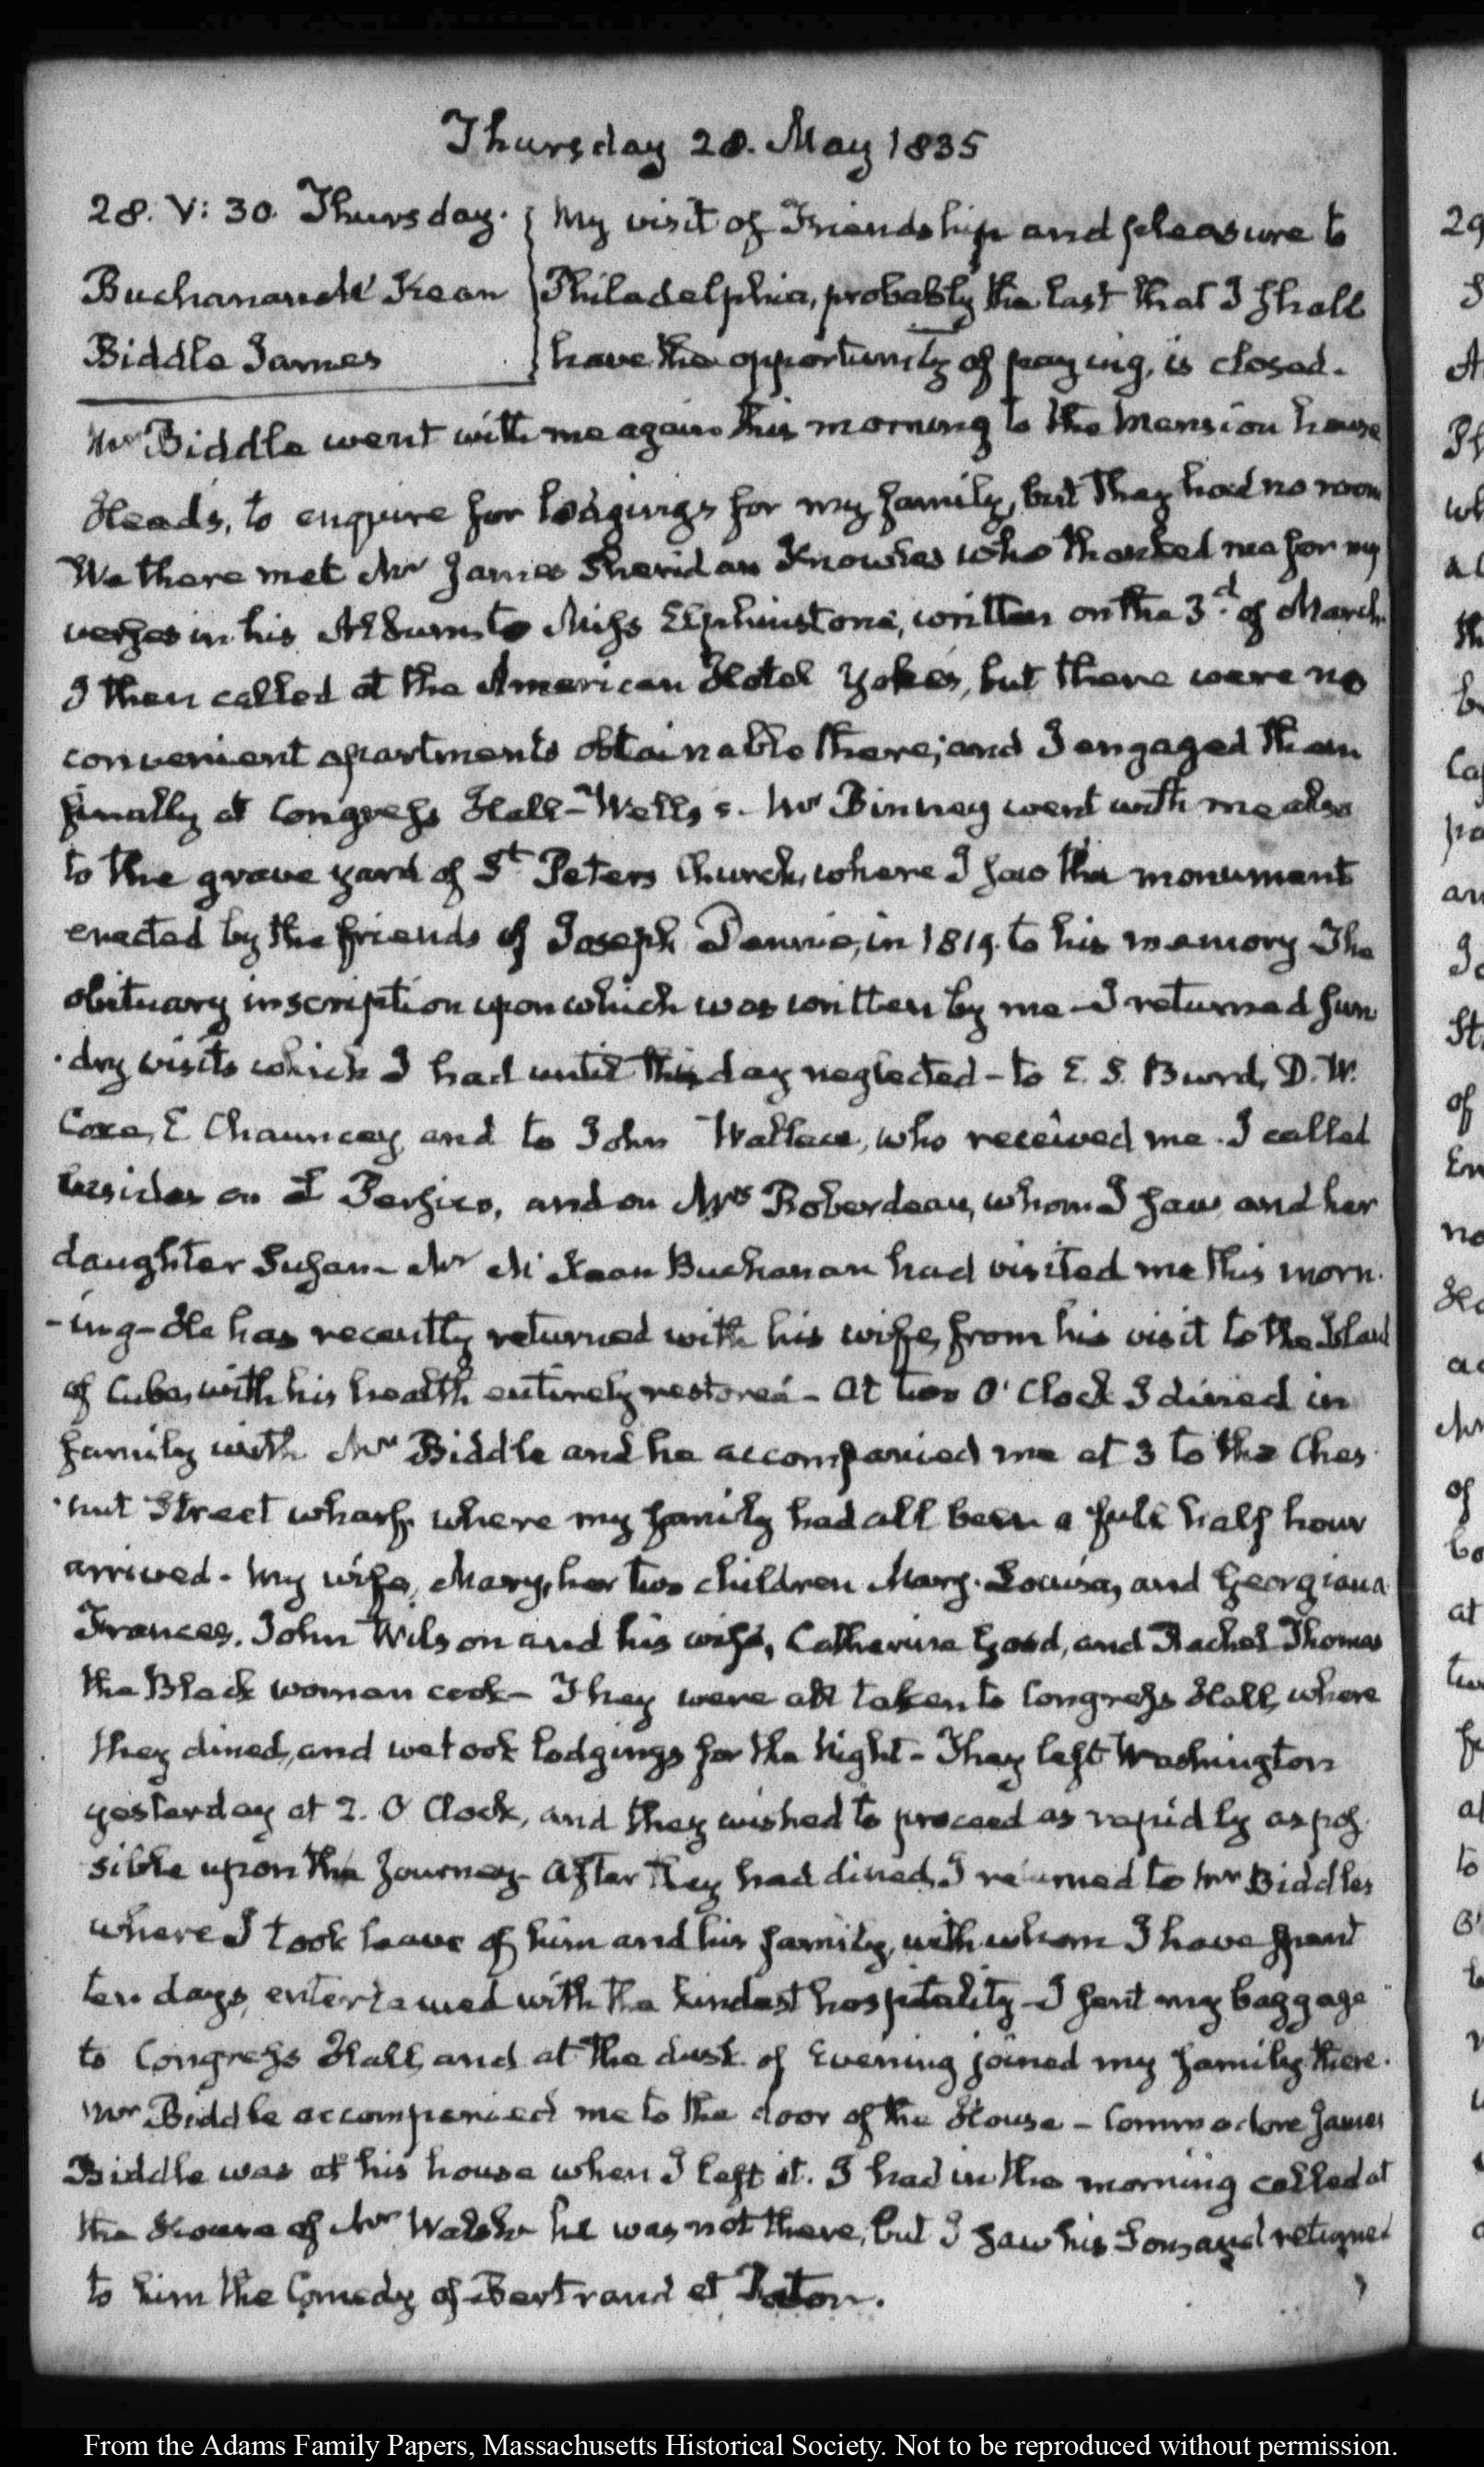 Thursday 28. May 1835
28. V: 30. Thursday.
Buchanan McKean
Biddle James
My visit of Friendship and pleasure to
Philadelphia, probably the last that I shall
have the opportunity of paying, is closed.
Mr Biddle went with me again this morning to the Mansion house
Head's, to enquire for lodgings for my family, but they had no room
We there met Mr James Sheridan Knowles who thanked me for my
verses in his Album to Miss Elphinstone, written on the 3d of March.
I then called at the American Hotel Yoke's, but there were no
convenient apartments obtainable there; and I engaged them
finally at Congress Hall - Wells's. Mr Binney went with me also
to the grave yard of St Peters Church, where I saw the monument
erected by the friends of Joseph Dennie, in 1819. to his memory The
obituary inscription upon which was written by me - I returned sun
-dry visits which I had until this day neglected - to E. S. Burd, D. W.
Coxe, E Chauncey, and to John Wallace, who received me. I called
besides on Persico, and on Mrs Roberdeau, whom I saw and her
daughter Susan - Mr McKean Buchanan had visited me this morn.
-ing - He has recently returned with his wife, from his visit to the Island
of Cuba, with his health entirely restored - At two O'Clock I dined in
family with Mr Biddle and he accompanied me at 3 to the Ches
-nut Street wharf, where my family had all been a full half hour
arrived - My wife, Mary, her two children Mary-Louisa, and Georgiana
Frances, John Wilson and his wife, Catherine Good, and Rachel Thomas
the Black woman cook - They were all taken to Congress Hall, where
they dined, and we took lodgings for the Night - They left Washington
yesterday at 2. O'Clock, and they wished to proceed as rapidly as pos
sible upon the Journey - After they had dined, I returned to Mr Biddles
where I took leave of him and his family, with whom I have spent
ten days, entertained with the kindest hospitality - I sent my baggage
to Congress Hall, and at the dusk of Evening joined my family there.
Mr Biddle accompanied me to the door of the House - Commodore James
Biddle was at his house when I left it. I had in the morning called at
the House of Mr Walsh he was not there, but I saw his Son, and returned
to him the Comedy of Bertrand et Raton.
From the Adams Family Papers, Massachusetts Historical Society. Not to be reproduced without permission.